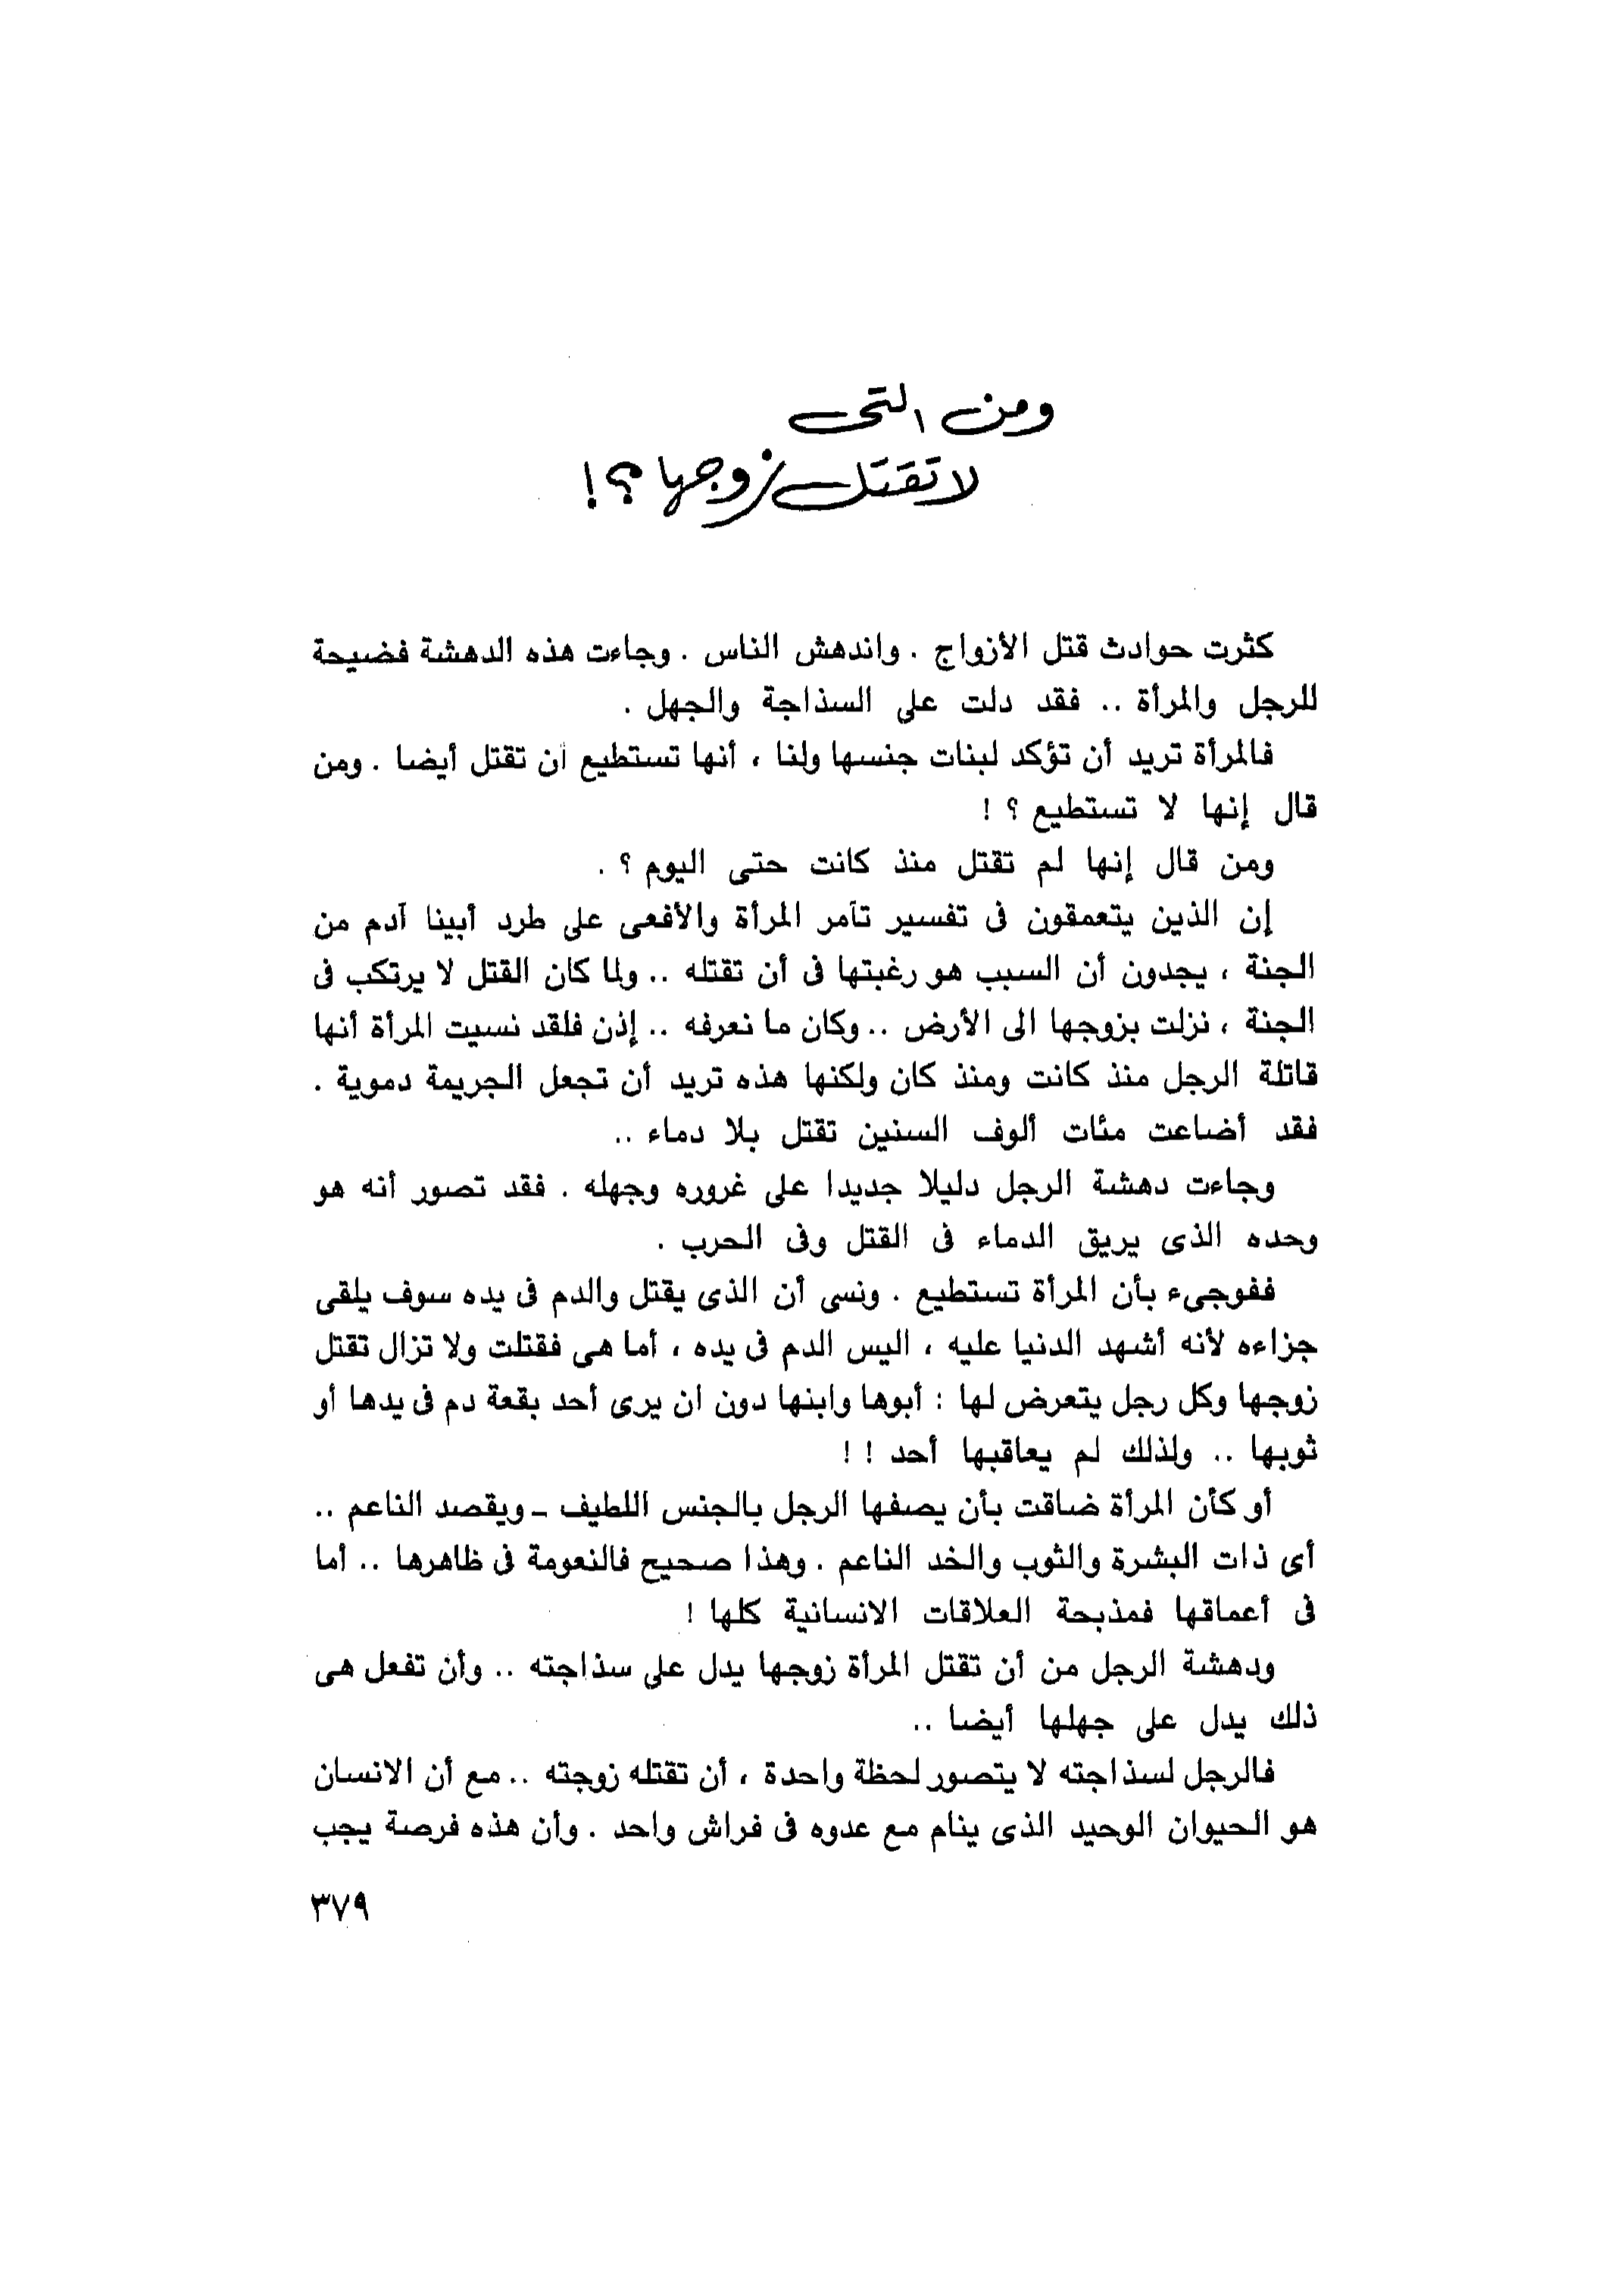 ومن التى
لا تقتل زوجها ؟!
كثرت حوادث قتل الأزواج . واندهش الناس . وجاءت هذه الدهشة فضيحة
للرجل والمرأة .. فقد دلت على السذاجة والجهل .
فالمرأة تريد أن تؤكد لبنات جنسها ولنا ، أنها تستطيع أن تقتل أيضا . ومن
قال إنها لا تستطيع ؟ !
ومن قال إنها لم تقتل منذ كانت حتى اليوم ؟ .
إن الذين يتعمقون فى تفسير تآمر المرأة والأفعى على طرد أبينا آدم من
الجنة ، يجدون أن السبب هو رغبتها فى أن تقتله .. ولما كان القتل لا يرتكب فى
الجنة ، نزلت بزوجها الى الأرض .. وكان ما نعرفه .. إذن فلقد نسيت المرأة أنها
قاتلة الرجل منذ كانت ومنذ كان ولكنها هذه تريد أن تجعل الجريمة دموية .
فقد أضاعت مئات ألوف السنين تقتل بلا دماء ..
وجاءت دهشة الرجل دليلا جديدا على غروره وجهله . فقد تصور أنه هو
وحده الذى يريق الدماء فى القتل وفى الحرب .
ففوجىء بأن المرأة تستطيع . ونسى أن الذى يقتل والدم فى يده سوف يلقى
جزاءه لأنه أشهد الدنيا عليه ، اليس الدم فى يده ، أما هى فقتلت ولا تزال تقتل
زوجها وكل رجل يتعرض لها : أبوها وابنها دون ان يرى أحد بقعة دم فى يدها أو
ثوبها .. ولذلك لم يعاقبها أحد ! !
أو كأن المرأة ضاقت بأن يصفها الرجل بالجنس اللطيف ـ ويقصد الناعم ..
أى ذات البشرة والثوب والخد الناعم . وهذا صحيح فالنعومة فى ظاهرها .. أما
فى أعماقها فمذبحة العلاقات الانسانية كلها !
ودهشة الرجل من أن تقتل المرأة زوجها يدل على سذاجته .. وأن تفعل هى
ذلك يدل على جهلها أيضا ..
فالرجل لسذاجته لا يتصور لحظة واحدة ، أن تقتله زوجته .. مع أن الانسان
هو الحيوان الوحيد الذى ينام مع عدوه فى فراش واحد . وأن هذه فرصة يجب
٣٧٩